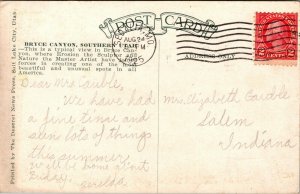 POST CARD
BRYCE CANYON, SOUTHERN UTAH
—This is a typical view in Bryce Canyon, where Erosion the Sculptor and Nature the Master Artist have joined forces in creating one of the most beautiful and unusual spots in all America.
AUG 24
ADDRESS ONLY
Printed by The Deseret News Press, Salt Lake City, Utah
Dear Mrs. Cauble,
We have had
a fine time and
seen lots of things
this summer.
Will be home about
Friday.
Mrs. Elizabeth Cauble
Salem
Indiana